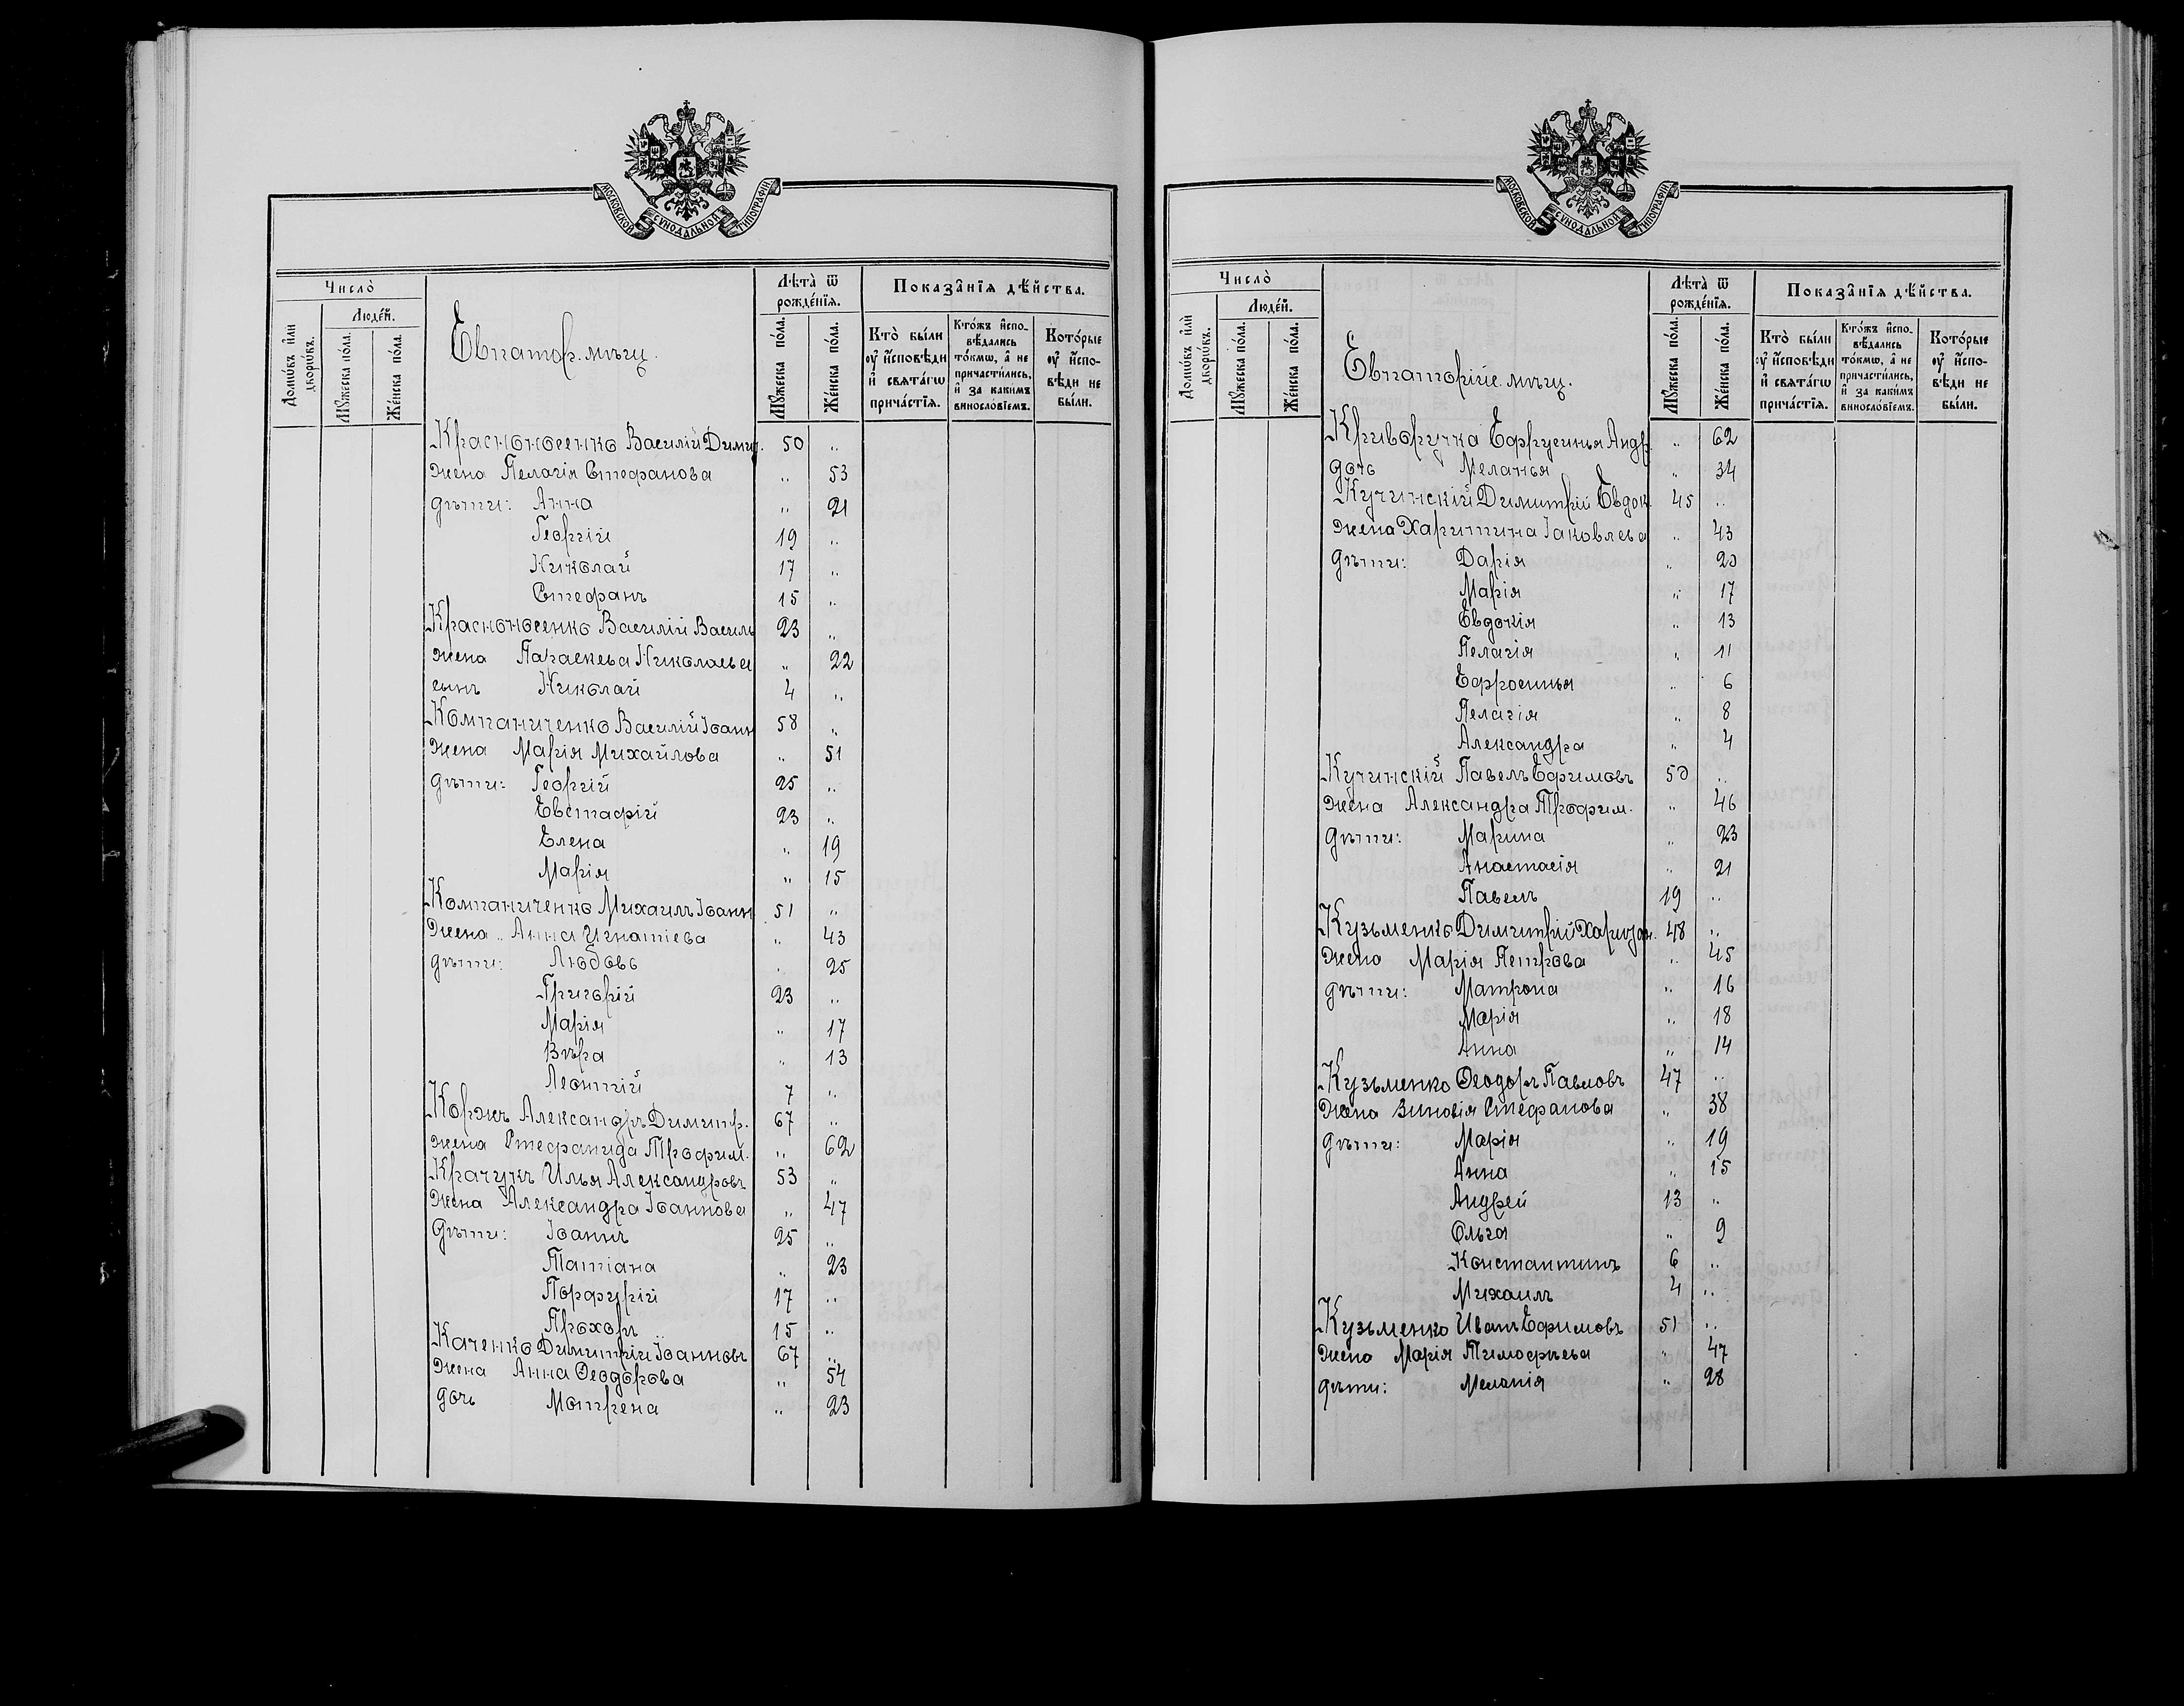 МОСКОВСКОЙ СѴНОДАЛЬНОЙ ТИПОГРАФІИ
Число̀
Домѡ́въ и҆лѝ дворѡ́въ.
Люде́й.
Мꙋ́жеска по́ла.
Же́нска по́ла.
Евпатор. мѣщ.
Лѣ́та ѿ рожде́нїѧ.
Мꙋ́жеска по́ла.
Же́нска по́ла.
Показа̑нїѧ дѣ́йства.
Кто̀ бы́ли оу҆ и҆́сповѣди и҆ свѧта́гѡ прича́стїѧ.
Кто́жъ и҆сповѣ́дались то́кмѡ, а҆ не причасти́лись, и҆ за каки́мъ винословїемъ.
Кото́рые оу҆ и҆́сповѣди не бы́ли.
Красноносенко Василій Димит. 50 „
жена Пелагія Стефанова „ 53
дѣти: Анна „ 21
Георгій 19 „
Николай 17 „
Стефанъ 15 „
Красноносенко Василій Василь 23 „
жена Параскева Николаева „ 22
сынъ Николай 4 „
Компаниченко Василій Іоанн 58 „
жена Марія Михайлова „ 51
дѣти: Георгій 25 „
Евстафій 23 „
Елена „ 19
Марія „ 15
Компаниченко Михаилъ Іоанн 51 „
жена „ Анна Игнатіева „ 43
дѣти: Любовь „ 25
Григорій 23 „
Марія „ 17
Вѣра „ 13
Леонтій 7 „
Коржъ Александръ Димитр. 67 „
жена Стефанида Трофим. „ 62
Крачукъ Илья Александровъ 53 „
жена Александра Іоаннова „ 47
дѣти: Іоаннъ 25 „
Татіана „ 23
Порфирій 17 „
Прохоръ 15 „
Каченко Димитрій Іоанновъ 67 „
жена Анна Ѳеодорова „ 54
дочь Мотрена „ 23
МОСКОВСКОЙ СѴНОДАЛЬНОЙ ТИПОГРАФІИ
Число̀
Домѡ́въ и҆лѝ дворѡ́въ.
Люде́й.
Мꙋ́жеска по́ла.
Же́нска по́ла.
Евпаторійс. мѣщ.
Лѣ́та ѿ рожде́нїѧ.
Мꙋ́жеска по́ла.
Же́нска по́ла.
Показа̑нїѧ дѣ́йства.
Кто̀ бы́ли оу҆ и҆́сповѣди и҆ свѧта́гѡ прича́стїѧ.
Кто́жъ и҆сповѣ́дались то́кмѡ, а҆ не причасти́лись, и҆ за каки́мъ винословїемъ.
Кото́рые оу҆ и҆́сповѣди не бы́ли.
Криворучка Ефрусинья Андр. „ 62
дочь Меланья „ 34
Кучинскій Димитрій Евдок. 45 „
жена Харитина Іаковлева „ 43
дѣти: Дарія „ 20
Марія „ 17
Евдокія „ 13
Пелагія „ 11
Ефросинья „ 6
Пелагія „ 8
Александра „ 4
Кучинскій Павелъ Ефимовъ 50 „
жена Александра Трофим. „ 46
дѣти: Марина „ 23
Анастасія „ 21
Павелъ 19 „
Кузьменко Димитрій Харитон. 48 „
жена Марія Петрова „ 45
дѣти: Матрона „ 16
Марія „ 18
Анна „ 14
Кузьменко Ѳеодоръ Павловъ 47 „
жена Зиновія Стефанова „ 38
дѣти: Марія „ 19
Анна „ 15
Андрей 13 „
Ольга „ 9
Константинъ 6 „
Михаилъ 4 „
Кузьменко Иванъ Ефимовъ 51 „
жена Марія Тимофѣева „ 47
дѣти: Меланія „ 28